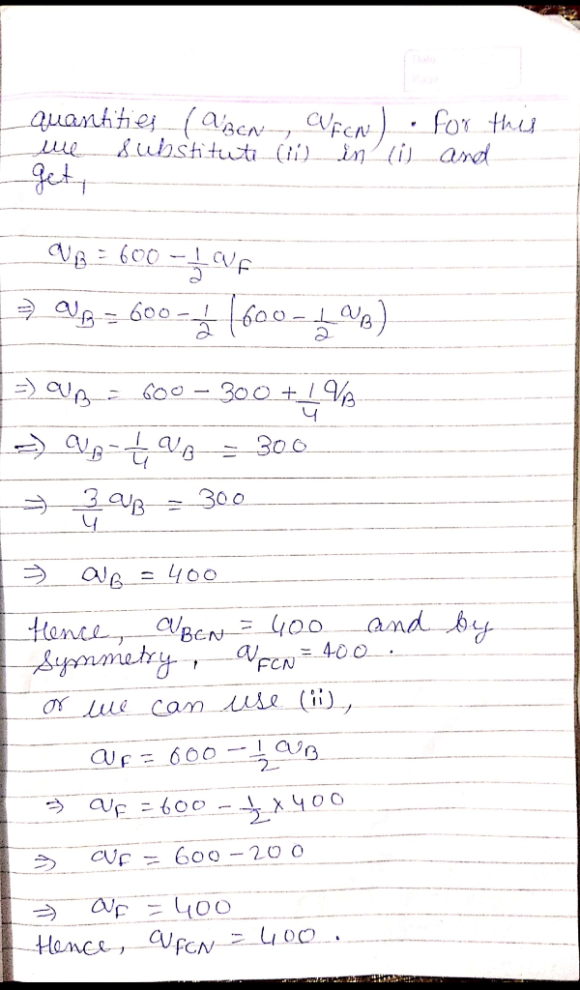 quantities (q_BCN , q_FCN) . For this
we substitute (ii) in (i) and
get,
q_B = 600 - 1/2 q_F
⇒ q_B = 600 - 1/2 (600 - 1/2 q_B)
⇒ q_B = 600 - 300 + 1/4 q_B
⇒ q_B - 1/4 q_B = 300
⇒ 3/4 q_B = 300
⇒ q_B = 400
Hence, q_BCN = 400 and by
Symmetry, q_FCN = 400 .
or we can use (ii),
q_F = 600 - 1/2 q_B
⇒ q_F = 600 - 1/2 × 400
⇒ q_F = 600 - 200
⇒ q_F = 400
Hence, q_FCN = 400 .